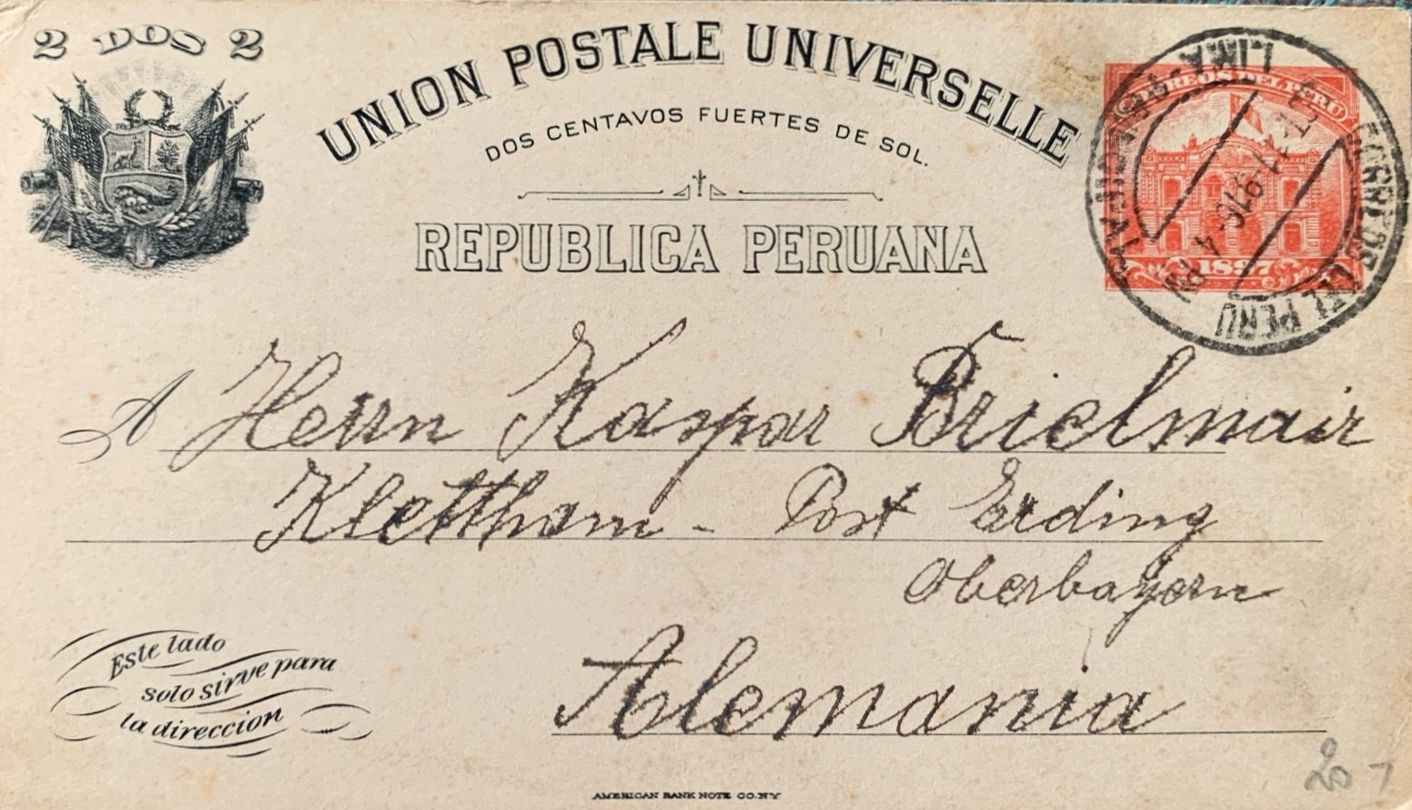 2 DOS 2
UNION POSTALE UNIVERSELLE
DOS CENTAVOS FUERTES DE SOL.
REPUBLICA PERUANA
CORREOS DEL PERU
1897
CORREOS DEL PERU
LIMA
4 PM
A Herrn Kaspar Brielmair
Klettham - Post Erding
Oberbayern
Alemania
Este lado
solo sirve para
la direccion
AMERICAN BANK NOTE CO. NY